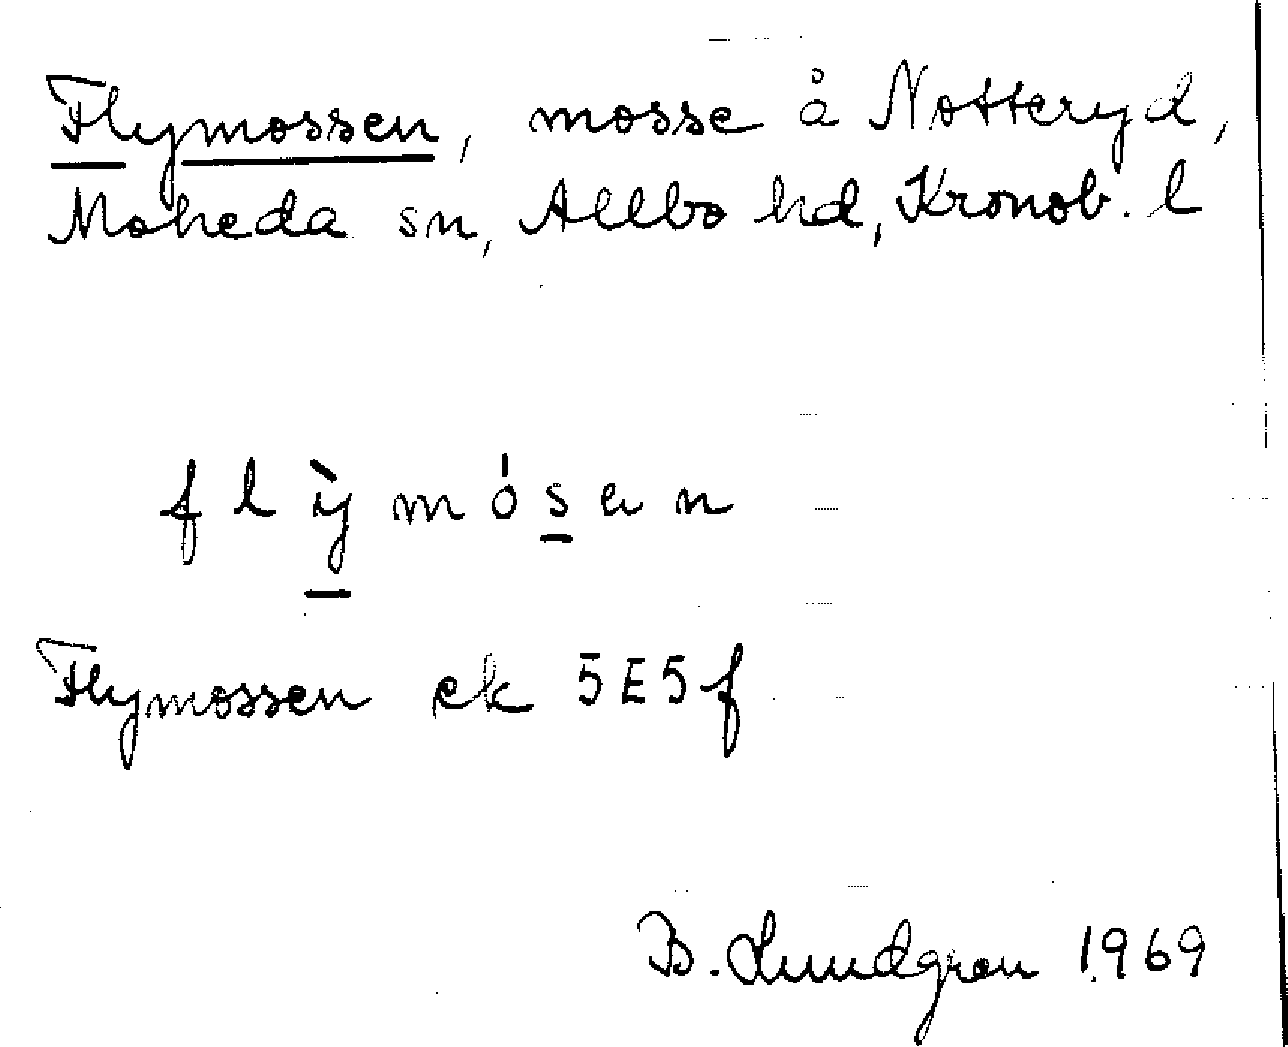 Flymossen, mosse å Notteryd,
Moheda sn, Allbo hd, Kronob. l
flỳmósen
Flymossen ek 5E5f
B. Lundgren 1969